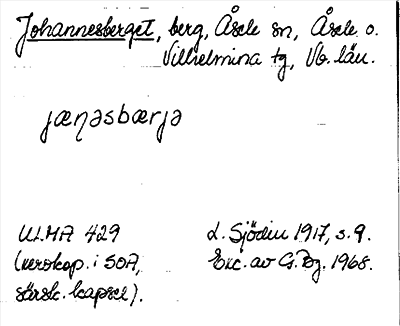 Johannesberget, berg, Åsele sn, Åsele o.
Vilhelmina tg, Vb. län.
jæņəsbærjə
ULMA 429
(xerokop. i SOA,
särsk. kapsel).
L. Sjödin 1917, s. 9.
Exc. av 1968.